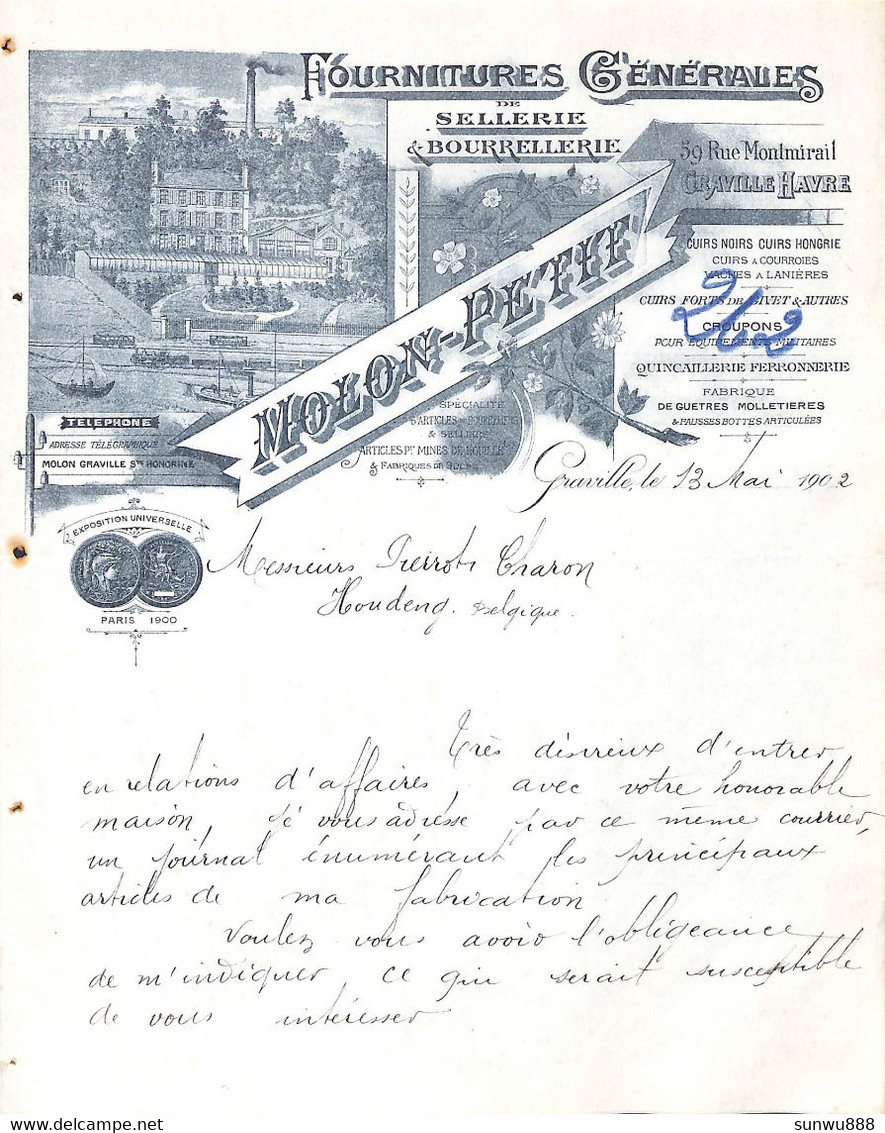 FOURNITURES GÉNÉRALES
DE
SELLERIE
& BOURRELLERIE
59 Rue Montmirail
GRAVILLE HAVRE
MOLON-PETIT
CUIRS NOIRS CUIRS HONGRIE
CUIRS A COURROIES
VACHES A LANIÈRES
CUIRS FORTS DE GIVET & AUTRES
CROUPONS
POUR EQUIPEMENTS MILITAIRES
QUINCAILLERIE FERRONNERIE
FABRIQUE
DE GUETRES MOLLETIERES
& FAUSSES BOTTES ARTICULÉES
SPÉCIALITÉ
D'ARTICLES DE
& SELLERIE
ARTICLES Pr MINES DE HOUILLE
& FABRIQUES DE SUCRE
TELEPHONE
ADRESSE TÉLÉGRAPHIQUE
MOLON GRAVILLE Ste HONORINE
EXPOSITION UNIVERSELLE
PARIS 1900
Graville, le 13 Mai 1902
Messieurs Pierrot & Charon
Houdeng. Belgique.
Très désireux d'entrer
en relations d'affaires, avec votre honorable
maison, je vous adresse par ce même courrier,
un journal énumérant les principaux
articles de ma fabrication
Voulez vous avoir l'obligeance
de m'indiquer, ce qui serait susceptible
de vous intéresser
Delcampe.net
sunwu888